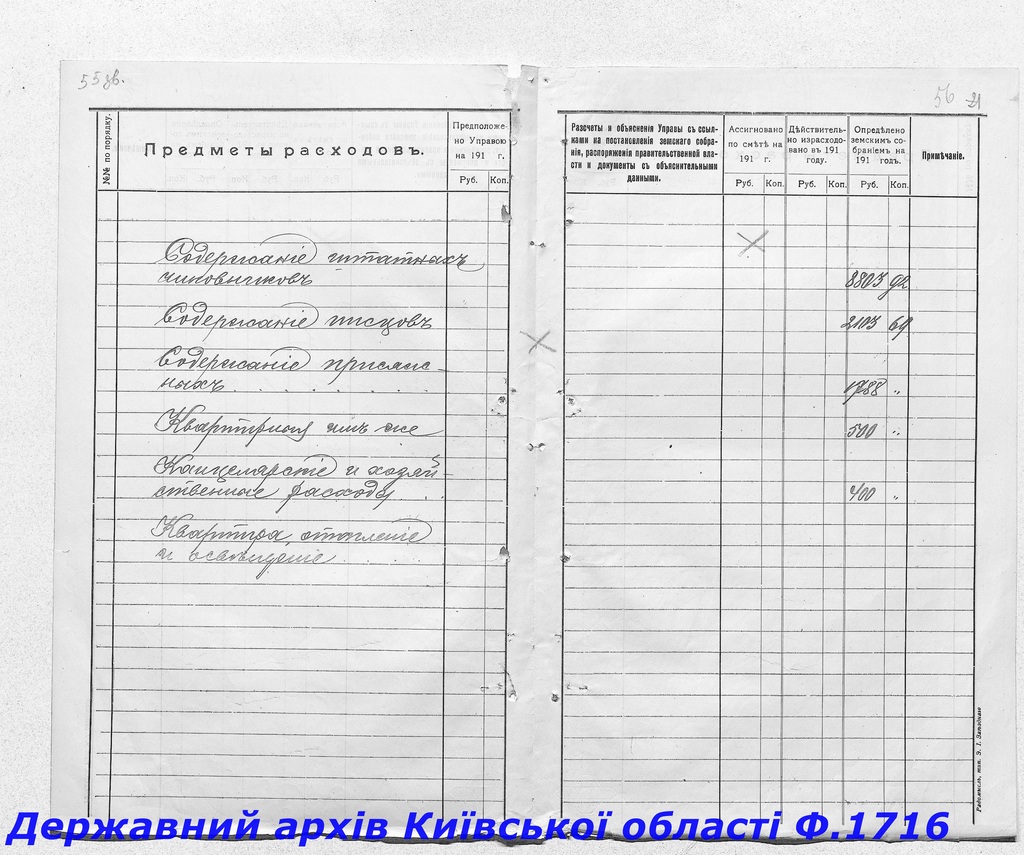 55 зв.
№№ по порядку.
Предметы расходовъ.
Предположе-
но Управою
на 191 г.
Руб. Коп.
Содержаніе штатныхъ
чиновниковъ
Содержаніе писцовъ
Содержаніе присяж-
ныхъ
Квартирныя имъ же
Канцелярскіе и хозяй-
ственные расходы
Квартира, отопленіе
и освѣщеніе
56 21
Разсчеты и объясненія Управы съ ссыл-
ками на постановленія земскаго собра-
нія, распоряженія правительственной вла-
сти и документы съ объяснительными
данными.
Ассигновано
по смѣтѣ на
191 г.
Руб. Коп.
Дѣйствитель-
но израсходо-
вано въ 191
году.
Руб. Коп.
Опредѣлено
земскимъ со-
браніемъ на
191 годъ.
Руб. Коп.
Примѣчаніе.
8803 92
2103 69
1788 "
500 "
400 "
Державний архів Київської області Ф.1716